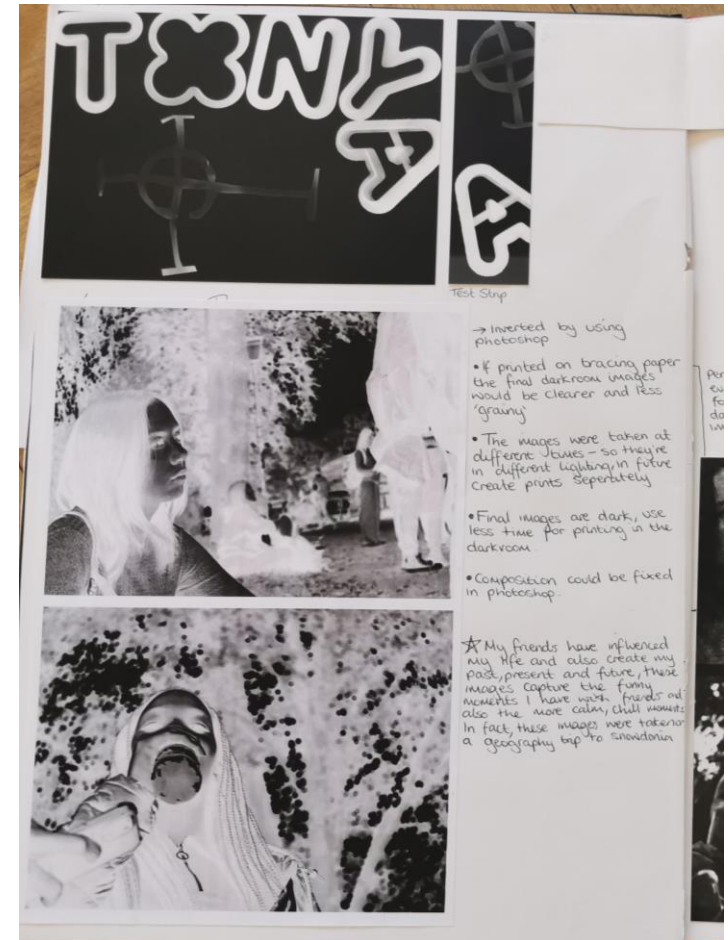 TONY
A
A
Test Strip
→ Inverted by using
photoshop
• If printed on tracing paper
the final darkroom images
would be clearer and less
'grainy'
• The images were taken at
different times – so they're
in different lighting, in future
create prints seperately
• Final images are dark, use
less time for printing in the
darkroom.
• Composition could be fixed
in photoshop.
☆ My friends have influenced
my life and also create my
past, present and future, these
images capture the funny
moments I have with friends and
also the more calm, chill moments
In fact, these images were taken on
a geography trip to snowdonia